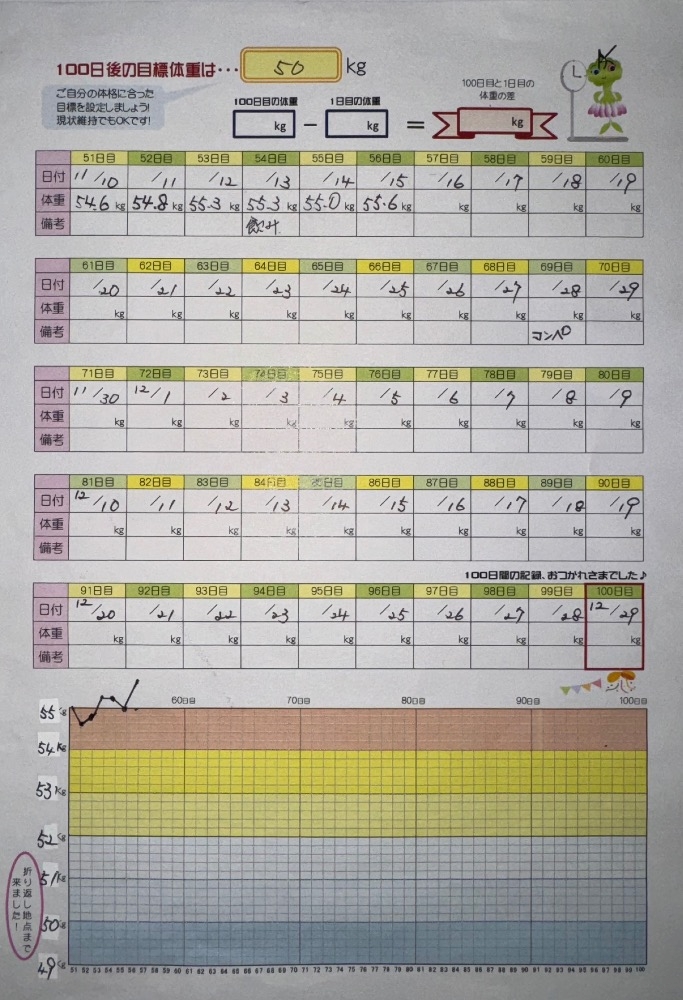 100日後の目標体重は・・・ 50 kg
ご自分の体格に合った
目標を設定しましょう!
現状維持でもOKです!
100日目の体重
kg
−
1日目の体重
kg
=
100日目と1日目の
体重の差
kg
51日目 52日目 53日目 54日目 55日目 56日目 57日目 58日目 59日目 60日目
日付 11/10 /11 /12 /13 /14 /15 /16 /17 /18 /19
体重 54.6 kg 54.8 kg 55.3 kg 55.3 kg 55.0 kg 55.6 kg kg kg kg kg
備考 飲み
61日目 62日目 63日目 64日目 65日目 66日目 67日目 68日目 69日目 70日目
日付 /20 /21 /22 /23 /24 /25 /26 /27 /28 /29
体重 kg kg kg kg kg kg kg kg kg kg
備考 コンペ
71日目 72日目 73日目 74日目 75日目 76日目 77日目 78日目 79日目 80日目
日付 11/30 12/1 /2 /3 /4 /5 /6 /7 /8 /9
体重 kg kg kg kg kg kg kg kg kg kg
備考
81日目 82日目 83日目 84日目 85日目 86日目 87日目 88日目 89日目 90日目
日付 12/10 /11 /12 /13 /14 /15 /16 /17 /18 /19
体重 kg kg kg kg kg kg kg kg kg kg
備考
100日間の記録、おつかれさまでした♪
91日目 92日目 93日目 94日目 95日目 96日目 97日目 98日目 99日目 100日目
日付 12/20 /21 /22 /23 /24 /25 /26 /27 /28 12/29
体重 kg kg kg kg kg kg kg kg kg kg
備考
60日目 70日目 80日目 90日目 100日目
55kg
54kg
53kg
52kg
51kg
50kg
49kg
折り返し地点まで
来ました!
51 52 53 54 55 56 57 58 59 60 61 62 63 64 65 66 67 68 69 70 71 72 73 74 75 76 77 78 79 80 81 82 83 84 85 86 87 88 89 90 91 92 93 94 95 96 97 98 99 100